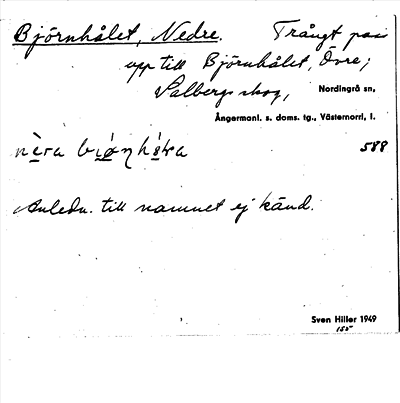 Björnhålet, Nedre. Trångt pass
upp till Björnhålet, Övre;
Salbergs skog, Nordingrå sn,
Ångermanl. s. doms. tg., Västernorrl. l.
588
Anledn. till namnet ej känd.
Sven Hiller 1949